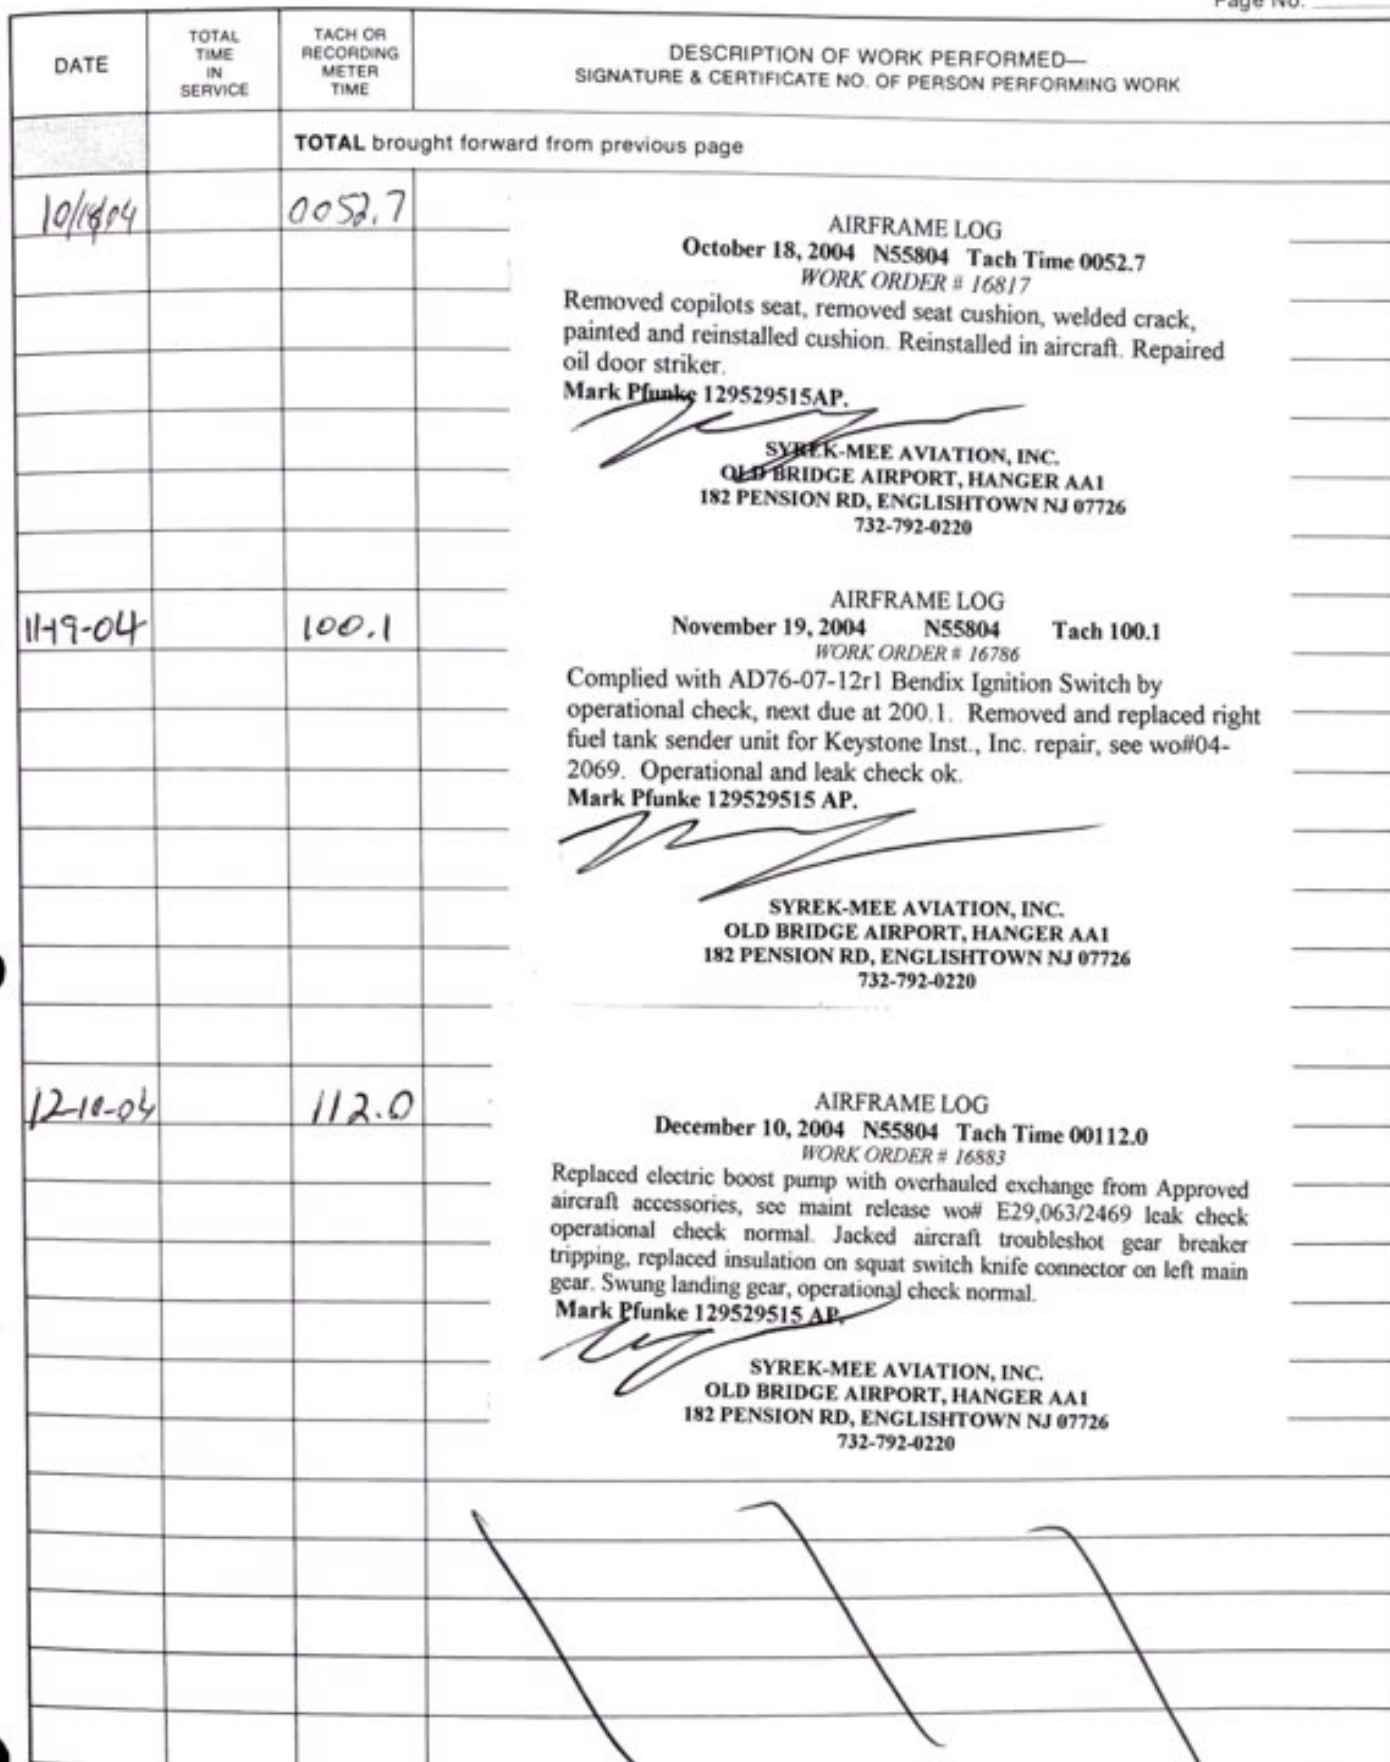 Page No.
DATE
TOTAL
TIME
IN
SERVICE
TACH OR
RECORDING
METER
TIME
DESCRIPTION OF WORK PERFORMED—
SIGNATURE & CERTIFICATE NO. OF PERSON PERFORMING WORK
TOTAL brought forward from previous page
10/18/04 0052.7
AIRFRAME LOG
October 18, 2004 N55804 Tach Time 0052.7
WORK ORDER # 16817
Removed copilots seat, removed seat cushion, welded crack,
painted and reinstalled cushion. Reinstalled in aircraft. Repaired
oil door striker.
Mark Pfunke 129529515AP.
SYREK-MEE AVIATION, INC.
OLD BRIDGE AIRPORT, HANGER AA1
182 PENSION RD, ENGLISHTOWN NJ 07726
732-792-0220
11-19-04 100.1
AIRFRAME LOG
November 19, 2004 N55804 Tach 100.1
WORK ORDER # 16786
Complied with AD76-07-12r1 Bendix Ignition Switch by
operational check, next due at 200.1. Removed and replaced right
fuel tank sender unit for Keystone Inst., Inc. repair, see wo#04-
2069. Operational and leak check ok.
Mark Pfunke 129529515 AP.
SYREK-MEE AVIATION, INC.
OLD BRIDGE AIRPORT, HANGER AA1
182 PENSION RD, ENGLISHTOWN NJ 07726
732-792-0220
12-10-04 112.0
AIRFRAME LOG
December 10, 2004 N55804 Tach Time 00112.0
WORK ORDER # 16883
Replaced electric boost pump with overhauled exchange from Approved
aircraft accessories, see maint release wo# E29,063/2469 leak check
operational check normal. Jacked aircraft troubleshot gear breaker
tripping, replaced insulation on squat switch knife connector on left main
gear. Swung landing gear, operational check normal.
Mark Pfunke 129529515 AP.
SYREK-MEE AVIATION, INC.
OLD BRIDGE AIRPORT, HANGER AA1
182 PENSION RD, ENGLISHTOWN NJ 07726
732-792-0220